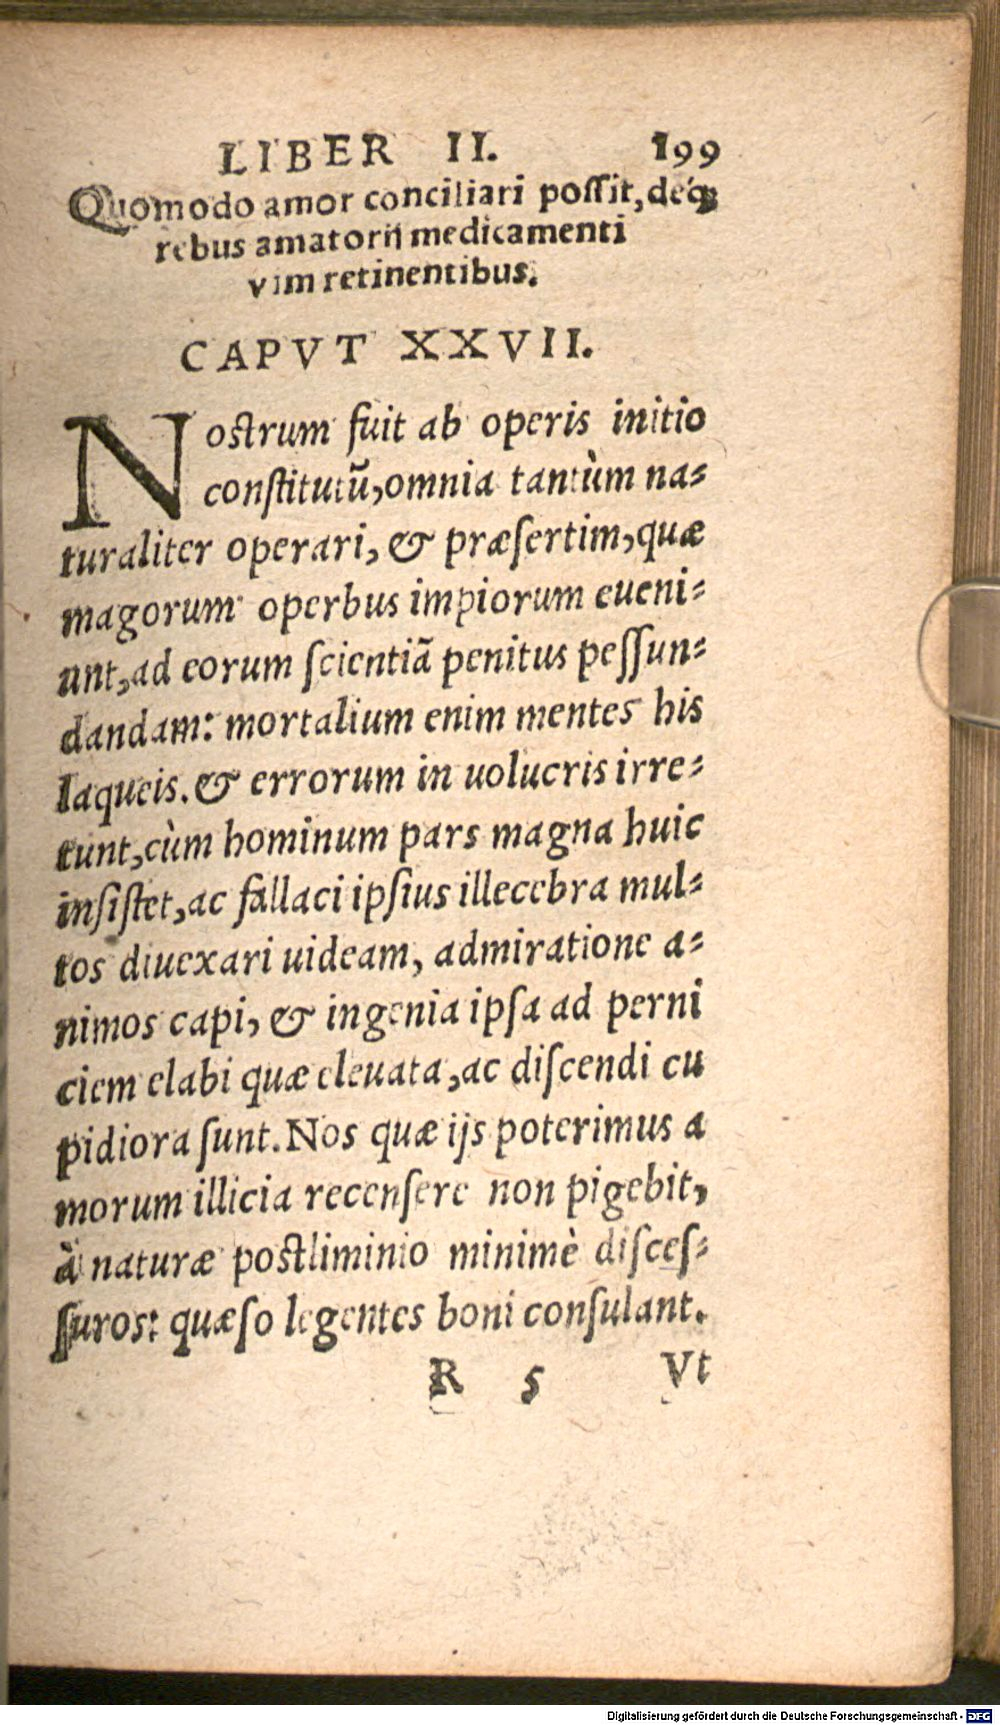 LIBER II. 199
Quomodo amor conciliari possit, deq́;
rebus amatorij medicamenti
vim retinentibus.
CAPVT XXVII.
Nostrum fuit ab operis initio
constitutū, omnia tantùm na-
turaliter operari, & præsertim, quæ
magorum operbus impiorum eueni-
unt, ad eorum scientiā penitus pessun-
dandam: mortalium enim mentes his
laqueis. & errorum in uolucris irre-
tunt, cùm hominum pars magna huic
insistet, ac fallaci ipsius illecebra mul-
tos diuexari uideam, admiratione a-
nimos capi, & ingenia ipsa ad perni
ciem elabi quæ eleuata, ac discendi cu
pidiora sunt. Nos quæ ijs poterimus a
morum illicia recensere non pigebit,
à naturæ postliminio minimè disces-
suros: quæso legentes boni consulant.
R 5 Vt
Digitalisierung gefördert durch die Deutsche Forschungsgemeinschaft - DFG